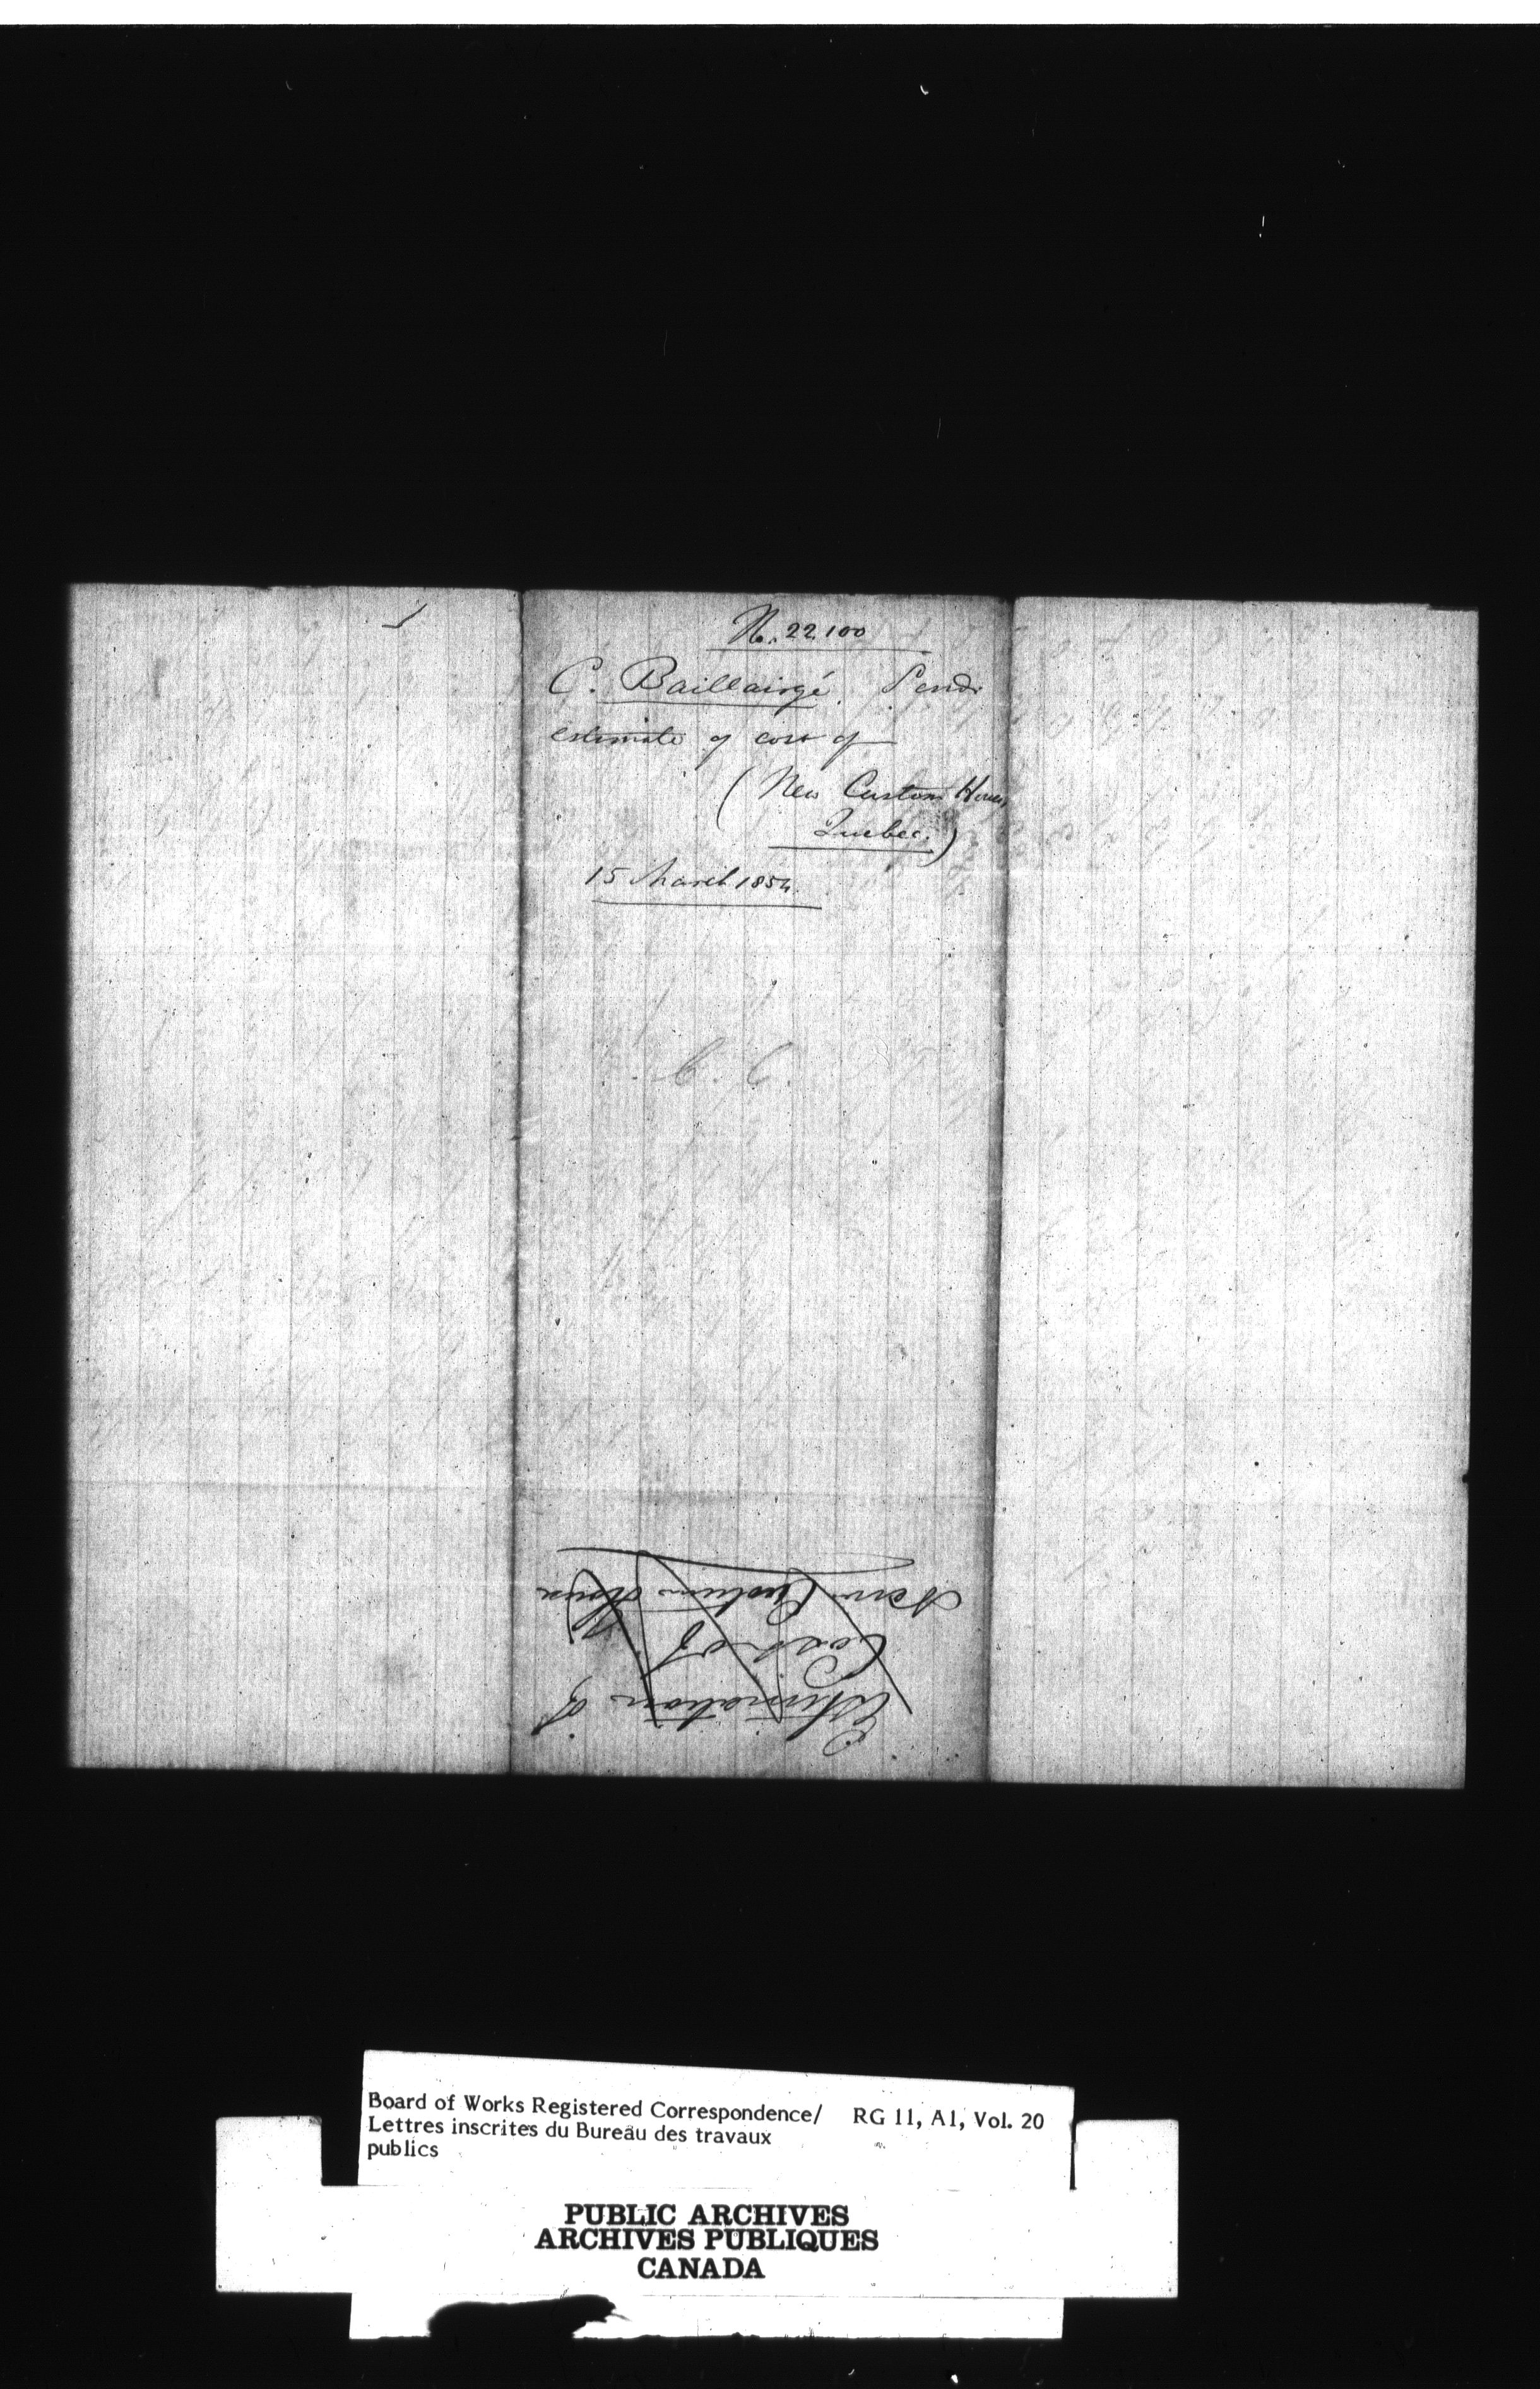 No. 22.100
C. Baillairgé. Sends
estimate of cost of
(New Custom House
Quebec.)
15 March 1854.
C. C.
Estimation of
Cost of
New Custom House
Board of Works Registered Correspondence/ RG 11, A1, Vol. 20
Lettres inscrites du Bureau des travaux
publics
PUBLIC ARCHIVES
ARCHIVES PUBLIQUES
CANADA